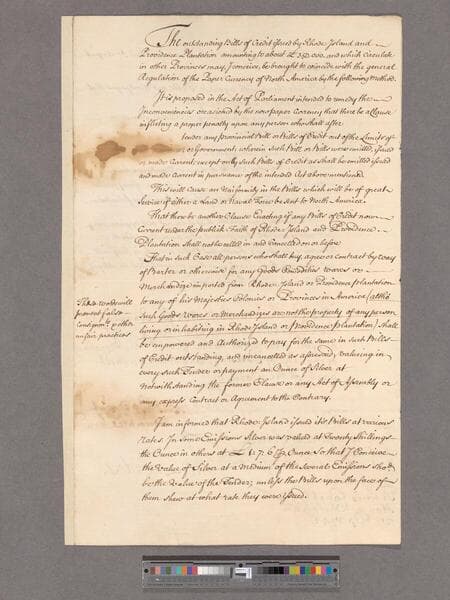 The outstanding Bills of Credit issued by Rhode Island and
Providence Plantation amounting to about £ and which circulate
in other Provinces may, I conceive, be brought to coincide with the general
Regulation of the Paper Currency of North America by the following Method.
It is proposed in the Act of Parliament intended to remedy the
Inconveniencies occasioned by the new paper Currency that there be a Clause
inflicting a proper penalty upon any person who shall after
tender any provincial Bill or Bills of Credit out of the Limits of
or Government, wherein such Bill or Bills were emitted, issued
or made Current, except only such Bills of Credit as shall be emitted issued
and made Current in pursuance of the intended Act above mentioned.
This will cause an Uniformity in the Bills which will be of great
Service if either a Land or Naval Force be sent to North America.
That there be another Clause Enacting if any Bills of Credit now
Current under the publick Faith of Rhode Island and Providence
Plantation shall not be called in and Cancelled on or before
That in such Case all persons who shall buy, agree or contract by way
of Barter or otherwise for any Goods Commodities wares or
Merchandize imported from Rhode Island or Providence plantation
to any of his Majesties Colonies or Provinces in America (altho'
such Goods wares or Merchandizes are not the property of any person
living or inhabiting in Rhode Island or Providence plantation) shall
be empowered and Authorized to pay for the same in such Bills
of Credit outstanding, and uncancelled as aforesaid, valuing in
every such Tender or payment an Ounce of Silver at
Notwithstanding the former Clause or any Act of Assembly or
any express Contract or Agreement to the Contrary.
These words will
prevent false
Consignmts. & other
unfair practices
I am informed that Rhode Island issued its Bills at various
rates. In some Emissions Silver was valued at Twenty Shillings
the Ounce in others at £1.7.6 Ounce so that I Conceive
the Value of Silver at a Medium of the several Emissions shod.
be the Value of the Tender; unless the Bills upon the face of
them shew at what rate they were issued.